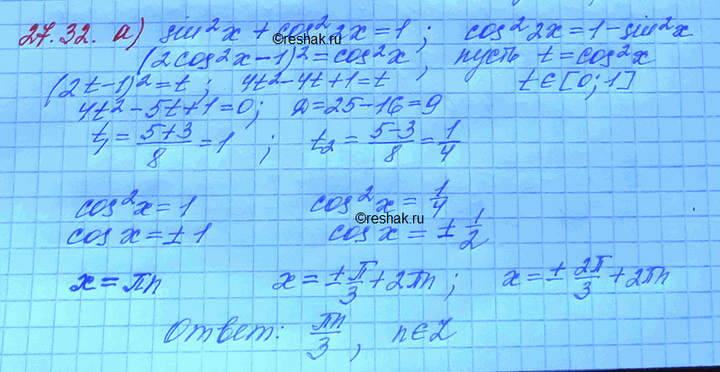 27.32. а) sin²x + cos²2x = 1 ; cos²2x = 1 - sin²x
©reshak.ru
(2cos²x - 1)² = cos²x , пусть t = cos²x
(2t-1)² = t ; 4t² - 4t + 1 = t t ∈ [0; 1]
4t² - 5t + 1 = 0; D = 25 - 16 = 9
t₁ = (5+3)/8 = 1 ; t₂ = (5-3)/8 = 1/4
cos²x = 1 cos²x = 1/4
©reshak.ru
cos x = ± 1 cos x = ± 1/2
x = πn x = ± π/3 + 2πn ; x = ± 2π/3 + 2πn
Ответ: πn/3 , n ∈ Z